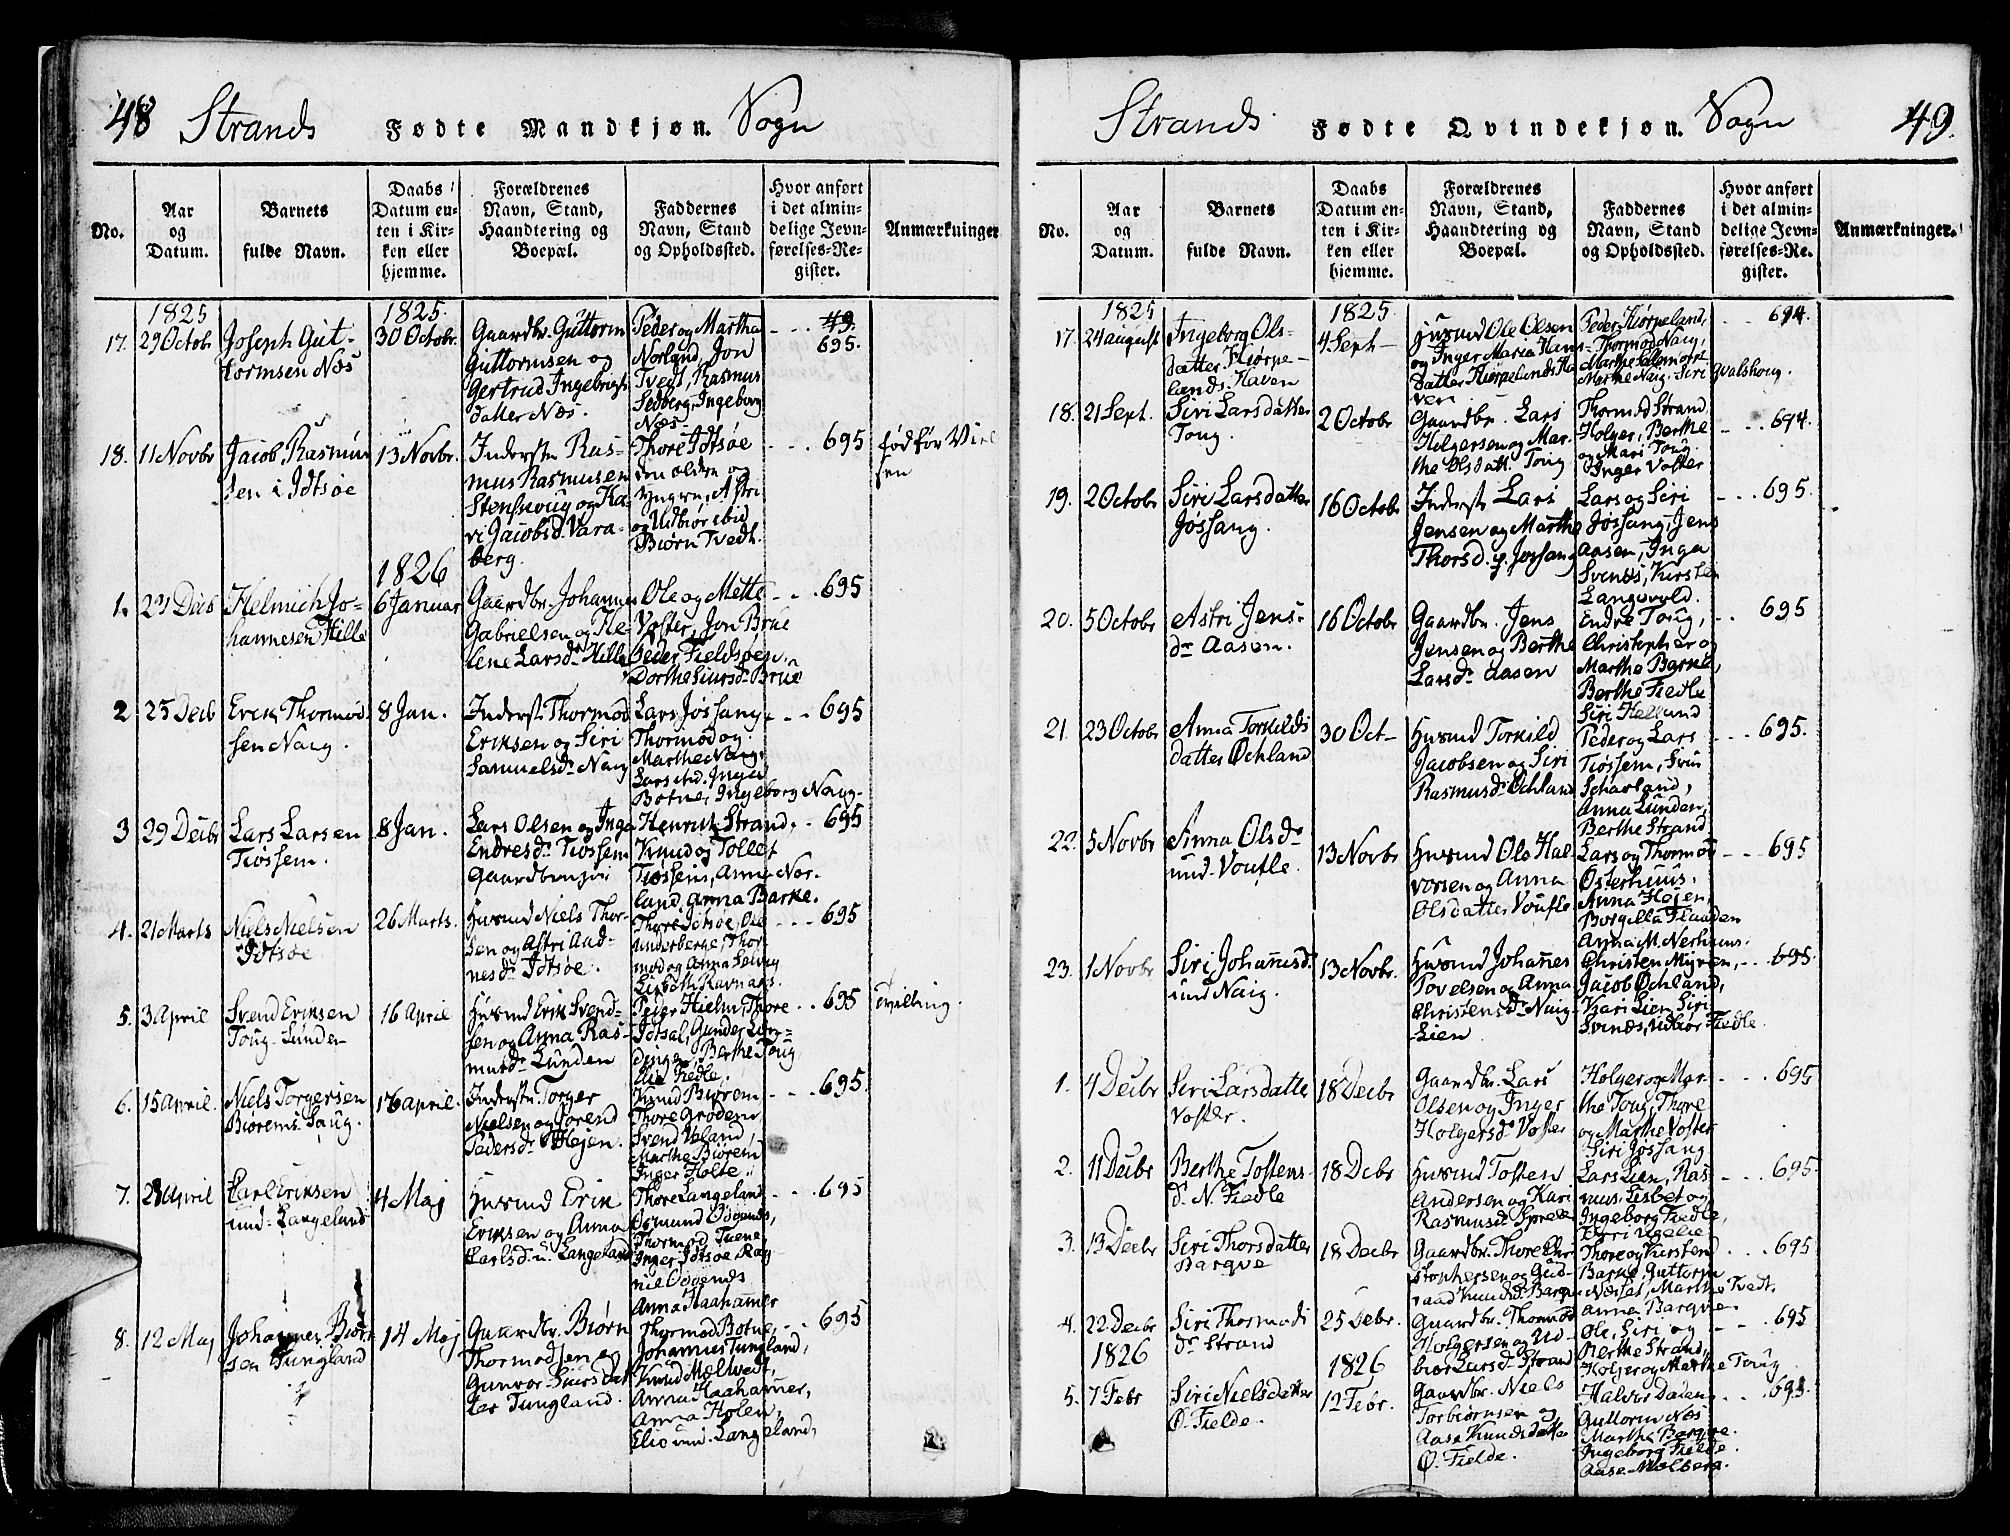 48 Strands Fødte Mandkjøn. Sogn
No.
Aar og Datum.
Barnets fulde Navn.
Daabs Datum enten i Kirken eller hjemme.
Forældrenes Navn, Stand, Haandtering og Boepæl.
Faddernes Navn, Stand og Opholdssted.
Hvor anført i det almindelige Jevnførelses-Register.
Anmærkninger
1825
1825.
17. 29 Octobr Joseph Gut-
tormsen Næs
30 Octobr.
Gaardbr. Guttorm
Guttormsen og
Gertrud Ingebrigts
datter Næs.
Peder og Martha
Norland, Jon
Tvedt, Rasmus
Sedberg, Ingeborg
Næs
49.
695.
18. 11 Novbr Jacob Rasmus
sen i Idtsøe
13 Novbr.
Inderste Ras-
mus Rasmusen
og Ka-
ri Jacobsd. Vara-
berg.
Thore Idtsøe
den ældre og
yngre, Astri
og Udbiør ibid
Biørn Tvedt.
695
født før Viel
sen
1826
1. 29 Decb Helmich Jo-
hannesen Hille
6 Januar
Gaardbr. Johannes
Gabrielsen og He-
lene Larsdr Hille
Ole og Mette
Voster, Jon Brue
Peder Fieldsøen
Dorthe Siursdr Brue
695
2 25 Decb Erik Thormod
sen Naig.
8 Jan.
Inderst. Thormod
Eriksen og Siri
Samuelsdr Naig
Lars Jøssang
Thormod og
Marthe Naig,
Lars ibid. Inga
Botne, Ingeborg Naig
695
3 29 Decbr Lars Larsen
Tiøssem.
8 Jan.
Lars Olsen og Inga
Endresdr Tiøssem
Henrich Strand
Knud og Tollef
Tiøssem, Anna Nor-
land, Anna Barke.
695
4. 21 Marts Niels Nielsen
Idtsøe
26 Marts.
Huusmd Niels Thor-
sen og Astri And-
nesdr Idtsøe.
Thore Idtsøe, Ole
Underberge, Thor-
mod og Anna Selvig
Lisbeth Ravnaas.
695
5. 3 April Svend Eriksen
Toug-Lunden
16 April
Huusmd Erik Svend-
sen og Anna Ras-
musdr Lunden
Peder Hielm, Thore
Idtsal, Gunder Lun-
dinger, Berthe Toug
Elie Fiedle.
695
Tvilling.
6. 15 April. Niels Torgersen
Biørems Saug.
16 April.
Inderste Torger
Nielsen og Jorend
Pedersdr Højen.
Knud Biørem
Thore Grødem
Svend Veland
Marthe Biørem
Inger Holte
695.
7. 28 April Carl Eriksen
und. Langeland
4 Maj
Huusmd Erik
Eriksen og Anna
Carlsd. u. Langeland
Thore Langeland
Osmund Odgends,
Thormod Tuene
Inger Idtsøe, Rag
nil Odgends
Anna Haahamer
695
8. 12 Maj Johannes Biørn
sen Tungland
14 Maj
Gaardbr. Biørn
Thormodsen og
Gunvor Siursdat
ter Tungland.
Thormod Botne,
Johannes Tungland,
Knud Mælkedt,
Anna Haahamer,
Anna Holen,
Elie und. Langeland,
695
Strands Fødte Qvindekjøn. Sogn 49.
No.
Aar og Datum.
Barnets fulde Navn.
Daabs Datum enten i Kirken eller hjemme.
Forældrenes Navn, Stand, Haandtering og Boepæl.
Faddernes Navn, Stand og Opholdssted.
Hvor anført i det almindelige Jevnførelses-Register.
Anmærkninger.
1825
1825.
17. 24 august Ingeborg Ols-
datter Kiørpe-
lands-Haven
4 Sept
Huusmd Ole Olsen
og Inger Maria Hans-
datter Kiørpelands Ha
ven
Peder Kiørpeland,
Thormod Naig,
Marthe
Marthe Naig, Siri Qvalshoug.
694.
18. 21 Sept. Siri Larsdatter
Toug.
2 Octobr
Gaardbr. Lars
Holgersen og Mar-
the Olsdatt. Toug
Thormod Strand
Holger, Berthe
og Mari Toug
Inger Voster
694.
19. 2 Octobr Siri Larsdatter
Jøssang.
16 Octobr
Inderst Lars
Jensen og Marthe
Thorsd. p. Jøssang
Lars og Siri
Jøssang, Jens
Aasen, Inga
Svenes, Kirsten
Langvold.
695.
20. 5 Octobr Astri Jens-
dr Aasen.
16 Octobr
Gaardbr. Jens
Jensen og Berthe
Larsdr Aasen
Endre Toug,
Christopher og
Marthe Barke,
Berthe Fiedle
Siri Helland
695
21. 23 Octobr Anna Torkilds
datter Ochland
30 Oct
Huusmd Torkild
Jacobsen og Siri
Rasmusdr Ochland
Peder og Lars
Tiøssem, Svend
Scharland,
Anna Lunden,
Berthe Strand
695.
22. 5 Novbr Anna Olsdr
und. Voufle.
13 Novbr
Huusmd Ole Hal-
vorsen og Anna
Olsdatter Voufle
Lars og Thormod
Østerhuus,
Anna Højen,
Borgilla Flaaden
Anna M. Nerhuus.
695
23. 1 Novbr Siri Johannesd.
und Naig.
13 Novbr
Huusmd Johannes
Tovelsen og Anna
Christensdr Naig-
Lien
Christen Myren,
Jacob Ochland,
Kari Lien, Siri
Svines, Udbiør Fiedle.
695.
1. 4 Decbr Siri Larsdatter
Voster.
18 Decbr
Gaardbr. Lars
Olsen og Inger
Holgersdr Voster
Holger og Mar-
the Toug, Thore
og Marthe Voster
Siri Jøssang
695
2. 11 Decbr Berthe Tostens-
dr N. Fiedle
18 Decbr
Huusmd Tosten
Andersen og Kari
Rasmusdr
Lars Lien, Ras-
mus, Lisbet og
Ingeborg Fiedle,
695
3. 13 Decbr Siri Thorsdatter
Barqve
18 Decbr
Gaardbr. Thore Chri
stophersen og Gud-
raad Knudsd. Barqve
Thore og Kirsten
Barke, Guttorm
Næsset, Marthe Tvedt.
Anna Barqve.
695
4. 22 Decbr Siri Thormods
dr Strand
25 Decbr.
Gaardbr. Thormod
Holgersen og Ud-
biør Larsdr Strand
Ole, Siri og
Berthe Strand,
Holger og Marthe Toug
695
1826
1826
5. 7 Febr Siri Nielsdatter
Ø. Fielde.
12 Febr.
Gaardbr. Niels
Torbiørnsen og
Aase Knudsdatter
Ø. Fielde.
Halvor Dalen
Guttorm Næs
Marthe Barqve.
Ingeborg Fielde.
Aase Molberg.
695.